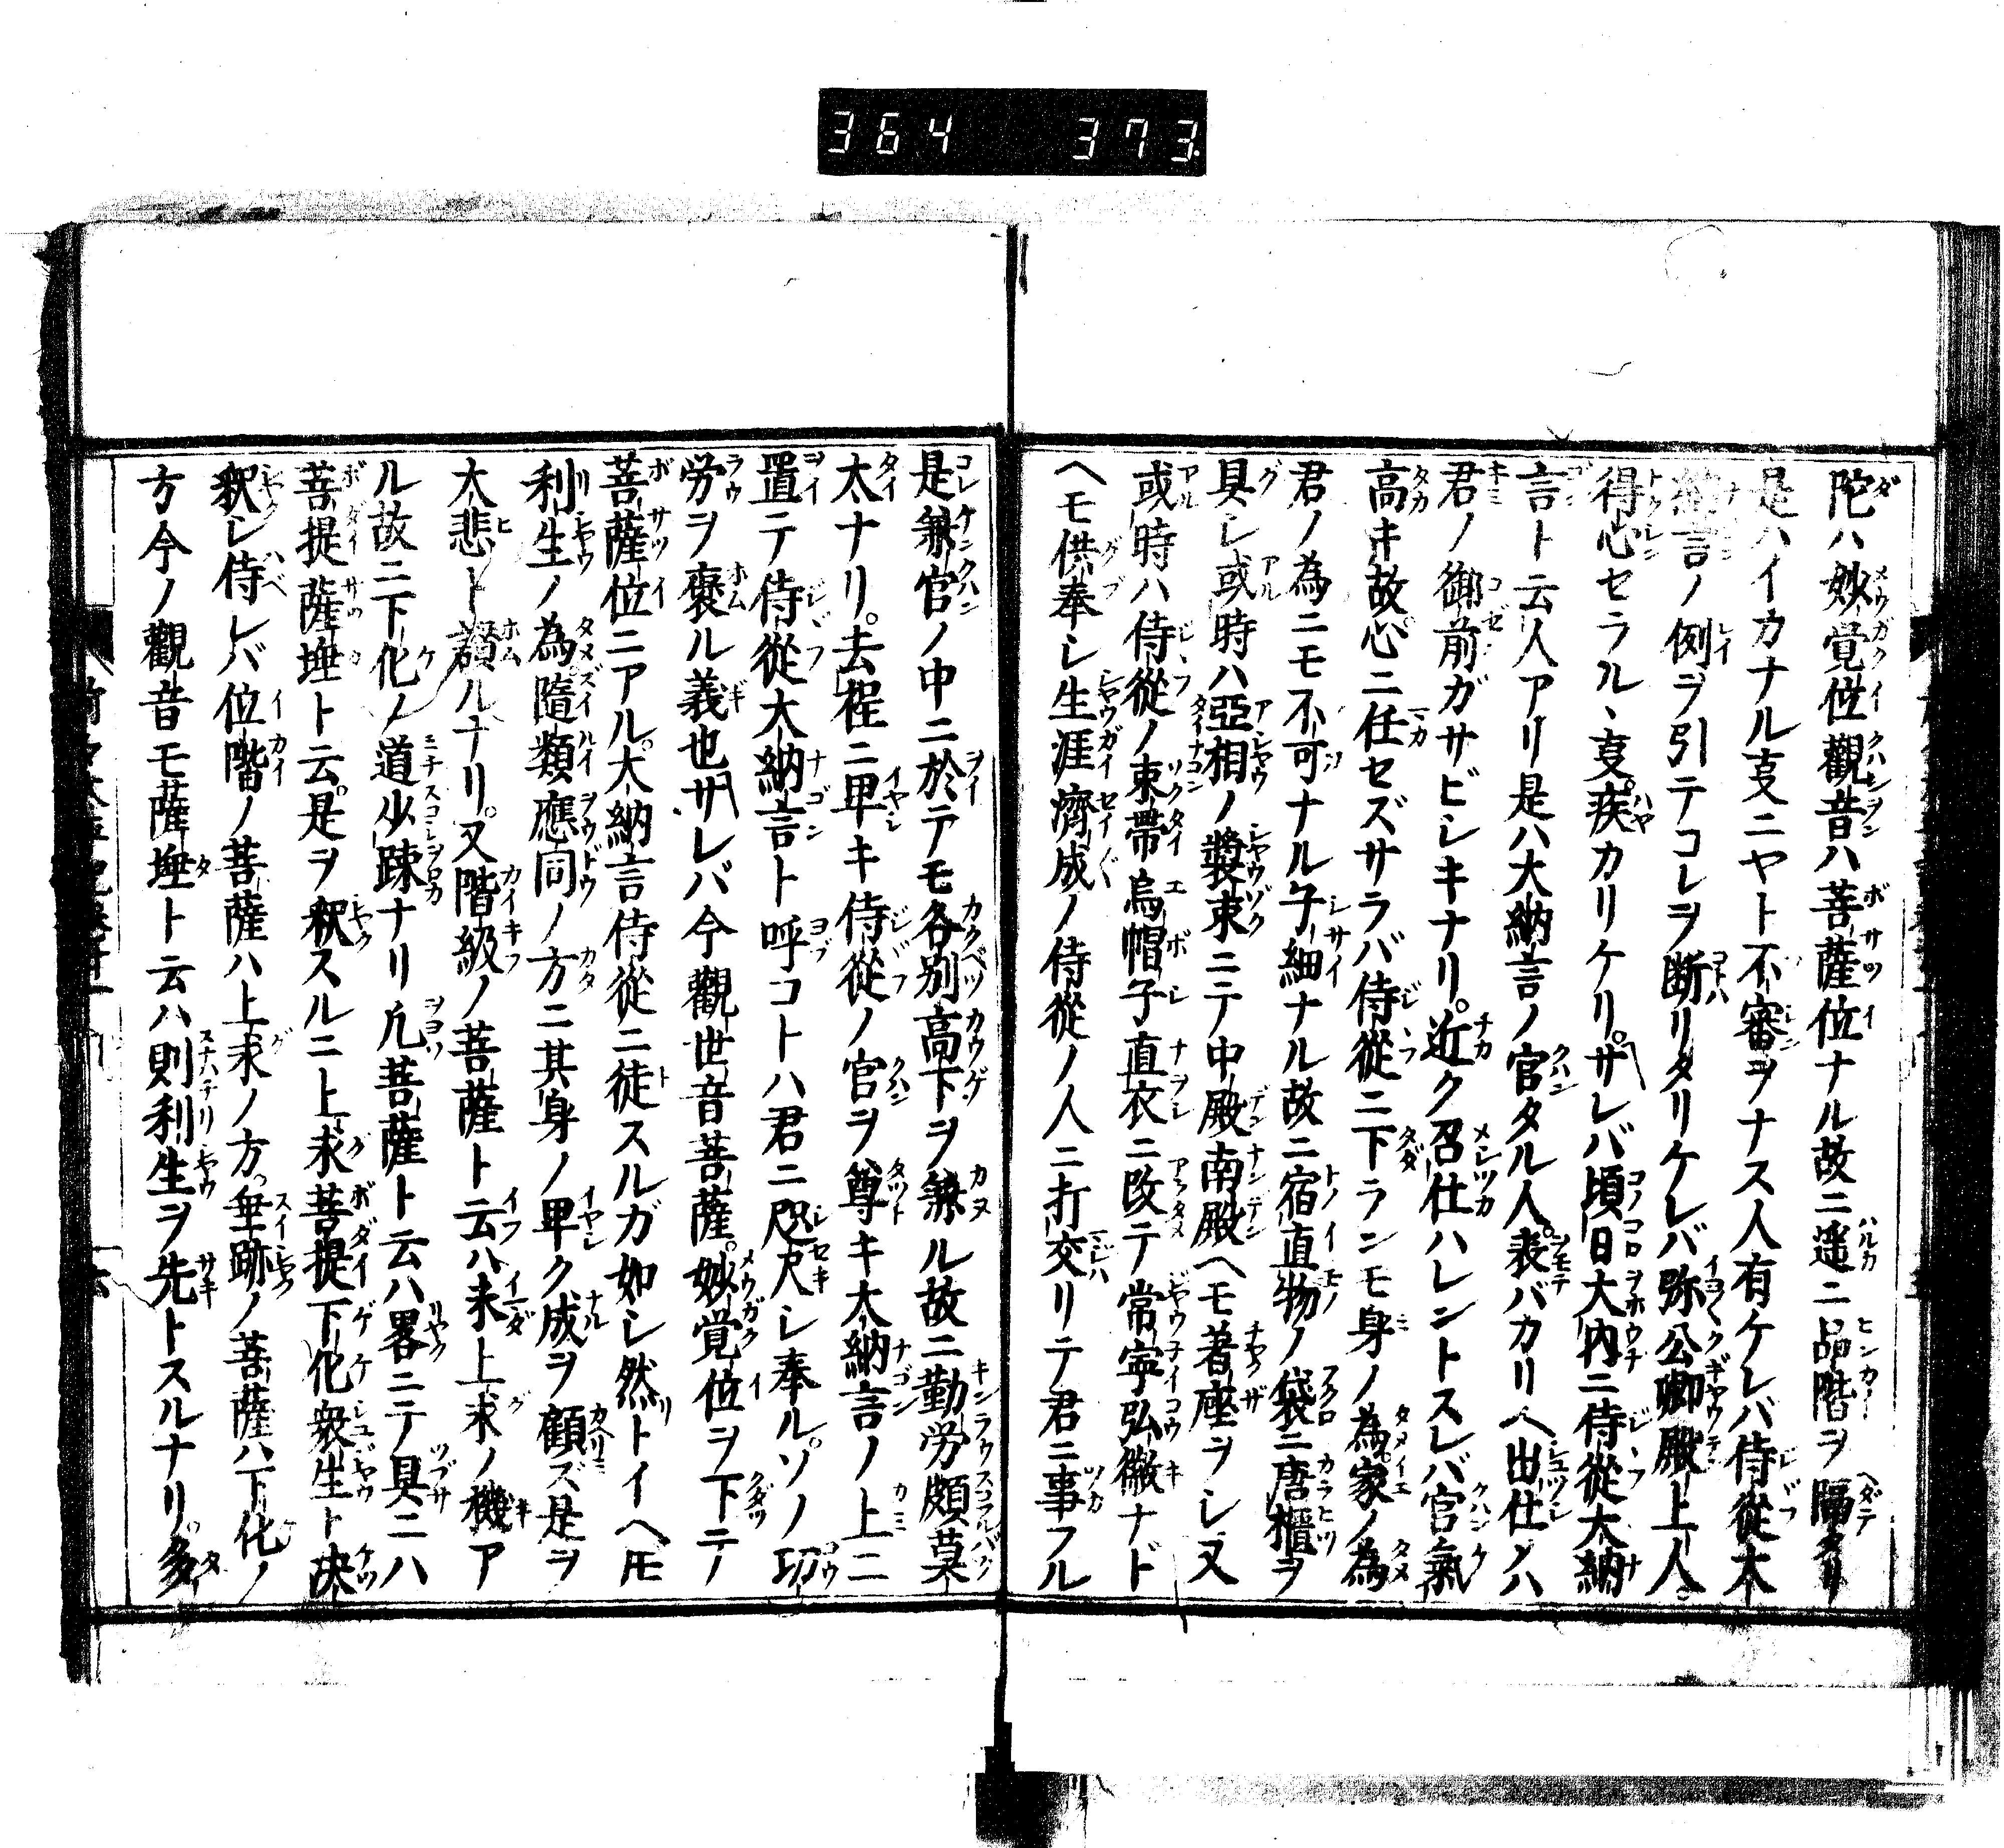 364 373
陀ハ妙覚位觀音ハ菩薩位ナル故ニ遥ニ品階ヲ隔タリ
是ハイカナル𫝆ニヤト不審ヲナス人有ケレバ侍従大
納言ノ例ヲ引テコレヲ断リタリケレバ弥公卿殿上人
得心セラル丶𫝆疾カリケリ。サレバ頃日大内ニ侍従大納
言ト云人アリ是ハ大納言ノ官タル人。表バカリヘ出仕ノハ
君ノ御前ガサビシキナリ。近ク召仕ハレントスレバ官氣
高キ故心ニ任セズサラバ侍従ニ下ランモ身ノ為。家ノ為
君ノ為ニモ不可ナル子細ナル故ニ宿直物ノ袋ニ唐櫃ヲ
具シ或時ハ亞相ノ裝束ニテ中殿南殿ヘモ着座ヲシ又
或時ハ侍従ノ束帯烏帽子直衣ニ改テ常寧弘徽ナド
ヘモ供奉シ生涯濟成ノ侍従ノ人ニ打交リテ君ニ事フル
是兼官ノ中ニ於テモ各別高下ヲ兼ル故ニ勤労頗莫
太ナリ。去程ニ卑キ侍従ノ官ヲ尊キ大納言ノ上ニ
置テ侍従大納言ト呼コトハ君ニ咫尺シ奉ルソノ功
労ヲ褒ル義也サレバ今觀世音菩薩。妙覚位ヲ下テ
菩薩位ニアル。大納言侍従ニ徒スルガ如シ然トイヘ𪜈
利生ノ為隨類應同ノ方ニ其身ノ卑ク成ヲ顧ズ是ヲ
大悲ト讃ルナリ。又階級ノ菩薩ト云ハ未上求ノ機ア
ル故ニ下化ノ道少踈ナリ凡菩薩ト云ハ畧ニテ具ニハ
菩提薩埵ト云。是ヲ釈スルニ上求菩提下化衆生ト決
釈シ侍レバ位階ノ菩薩ハ上求ノ方。垂跡ノ菩薩ハ下化ノ
方今ノ觀音モ薩埵ト云ハ則利生ヲ先トスルナリ。多